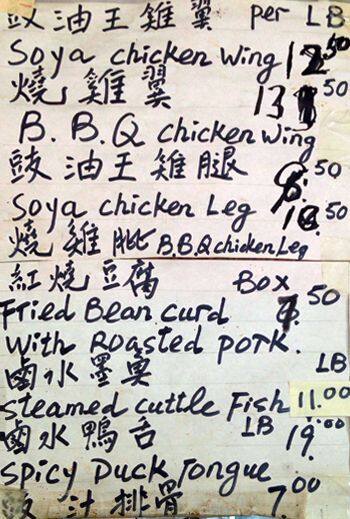 豉油王雞翼 per LB
Soya chicken wing 12.50
燒雞翼
B.B.Q chicken wing
豉油王雞腿
Soya chicken Leg
燒雞 B.B.Q chicken Leg
紅燒豆腐 Box
Fried Bean curd
With Roasted pork.
鹵水墨 LB
steamed cuttle Fish 11.00
鹵水鴨舌 LB 19.00
spicy Duck Tongue
豉汁排骨 7.00